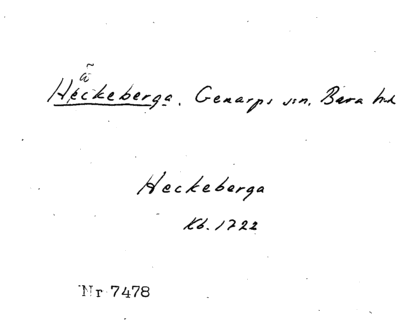 ä
Heckeberga, Genarps sn, Bara hd
Heckeberga
Kb. 1722
Nr 7478